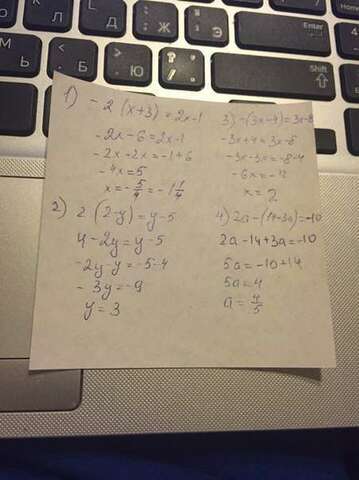 1) -2(x+3)=2x-1
-2x-6=2x-1
-2x-2x=-1+6
-4x=5
x=-5/4=-1 1/4
2) 2(2-y)=y-5
4-2y=y-5
-2y-y=-5-4
-3y=-9
y=3
3) -(3x-4)=3x-8
-3x+4=3x-8
-3x-3x=-8-4
-6x=-12
x=2
4) 2a-(14-3a)=-10
2a-14+3a=-10
5a=-10+14
5a=4
a=4/5
Ь
Л
Д
Ж
Э
Б
Ю
Enter
Shift